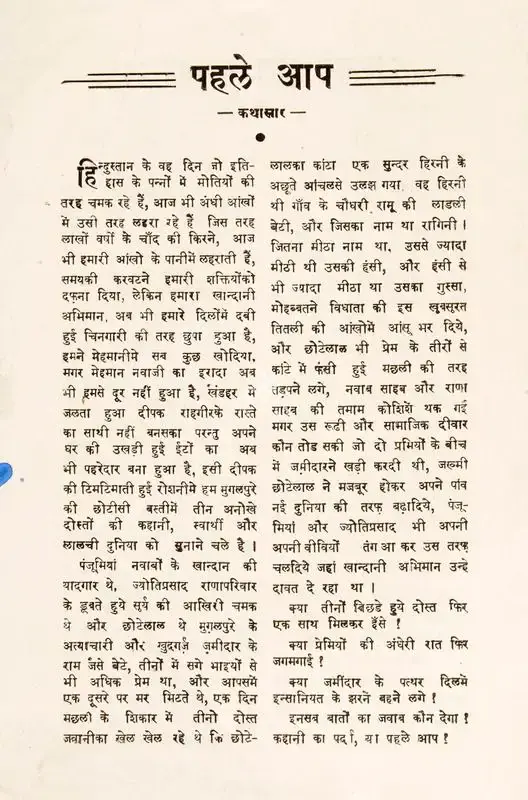 पहले आप
— कथासार —
हिन्दुस्तान के वह दिन जो इति-
हास के पन्नों में मोतियों की
तरह चमक रहे हैं, आज भी अंधी आंखों
में उसी तरह लहरा रहे हैं जिस तरह
लाखों वर्षो के चाँद की किरने, आज
भी हमारी आंखो के पानीमें लहराती हैं,
समयकी करवटने हमारी शक्तियोंको
दफ़ना दिया, लेकिन हमारा खान्दानी
अभिमान. अब भी हमारे दिलोंमें दबी
हुई चिनगारी की तरह छुपा हुआ है,
हमने मेहमानीमे सब कुछ खोदिया.
मगर मेहमान नवाजी का इरादा अब
भी हमसे दूर नहीं हुआ है, खंडहर में
जलता हुआ दीपक राहगीरके रास्ते
का साथी नहीं बनसका परन्तु अपने
घर की उखड़ी हुई ईटों का अब
भी पहरेदार बना हुआ है, इसी दीपक
की टिमटिमाती हुई रोशनीमें हम मुगलपुरे
की छोटीसी बस्तीमें तीन अनोखे
दोस्तों की कहानी, स्वार्थी और
लालची दुनिया को सुनाने चले है ।
पंजूमियां नवाबों के खान्दान की
यादगार थे, ज्योतिप्रसाद राणापरिवार
के डूबते हुये सूर्य की आखिरी चमक
थे और छोटेलाल थे मुग़लपुरे के
अत्याचारी और खुदगर्ज़ ज़मीदार के
राम जंसे बेटे, तीनों में सगे भाइयों से
भी अधिक प्रेम था, और आपसमें
एक दूसरे पर मर मिटते थे, एक दिन
मछली के शिकार में तीनो दोस्त
जवानीका खेल खेल रहे थे कि छोटे-
लालका कांटा एक सुन्दर हिरनी के
अछूते आंचलसे उलझ गया. वह हिरनी
थी गाँव के चौधरी रामू की लाडली
बेटी, और जिसका नाम था रागिनी ।
जितना मीठा नाम था. उससे ज्यादा
मीठी थी उसकी हंसी, और हंसी से
भी ज्यादा मीठा था उसका गुस्सा,
मोहब्बतने विधाता की इस खूबसूरत
तितली की आंखोमें आंसू भर दिये,
और छोटेलाल भी प्रेम के तीरों से
कांटे में फंसी हुई मछली की तरह
तड़पने लगे, नवाब साहब और राणा
साहब की तमाम कोशिशें थक गई
मगर उस रूढी और सामाजिक दीवार
कौन तोड सकी जो दो प्रमियों के बीच
में ज़मीदारने खड़ी करदी थी, जख्मी
छोटेलाल ने मजबूर होकर अपने पांव
नई दुनिया की तरफ बढ़ादिये, पंजू-
मियां और ज्योतिप्रसाद भी अपनी
अपनी बीवियों तंग आ कर उस तरफ़
चलदिये जहां खान्दानी अभिमान उन्हे
दावत दे रहा था ।
क्या तीनों बिछडे हुये दोस्त फिर
एक साथ मिलकर हँसे !
क्या प्रेमियों की अंधेरी रात फिर
जगमगाई !
क्या जमींदार के पत्थर दिलमें
इन्सानियत के झरनें बहने लगे !
इनसब बातों का जवाब कौन देगा !
कहानी का पर्दा, या पहले आप !